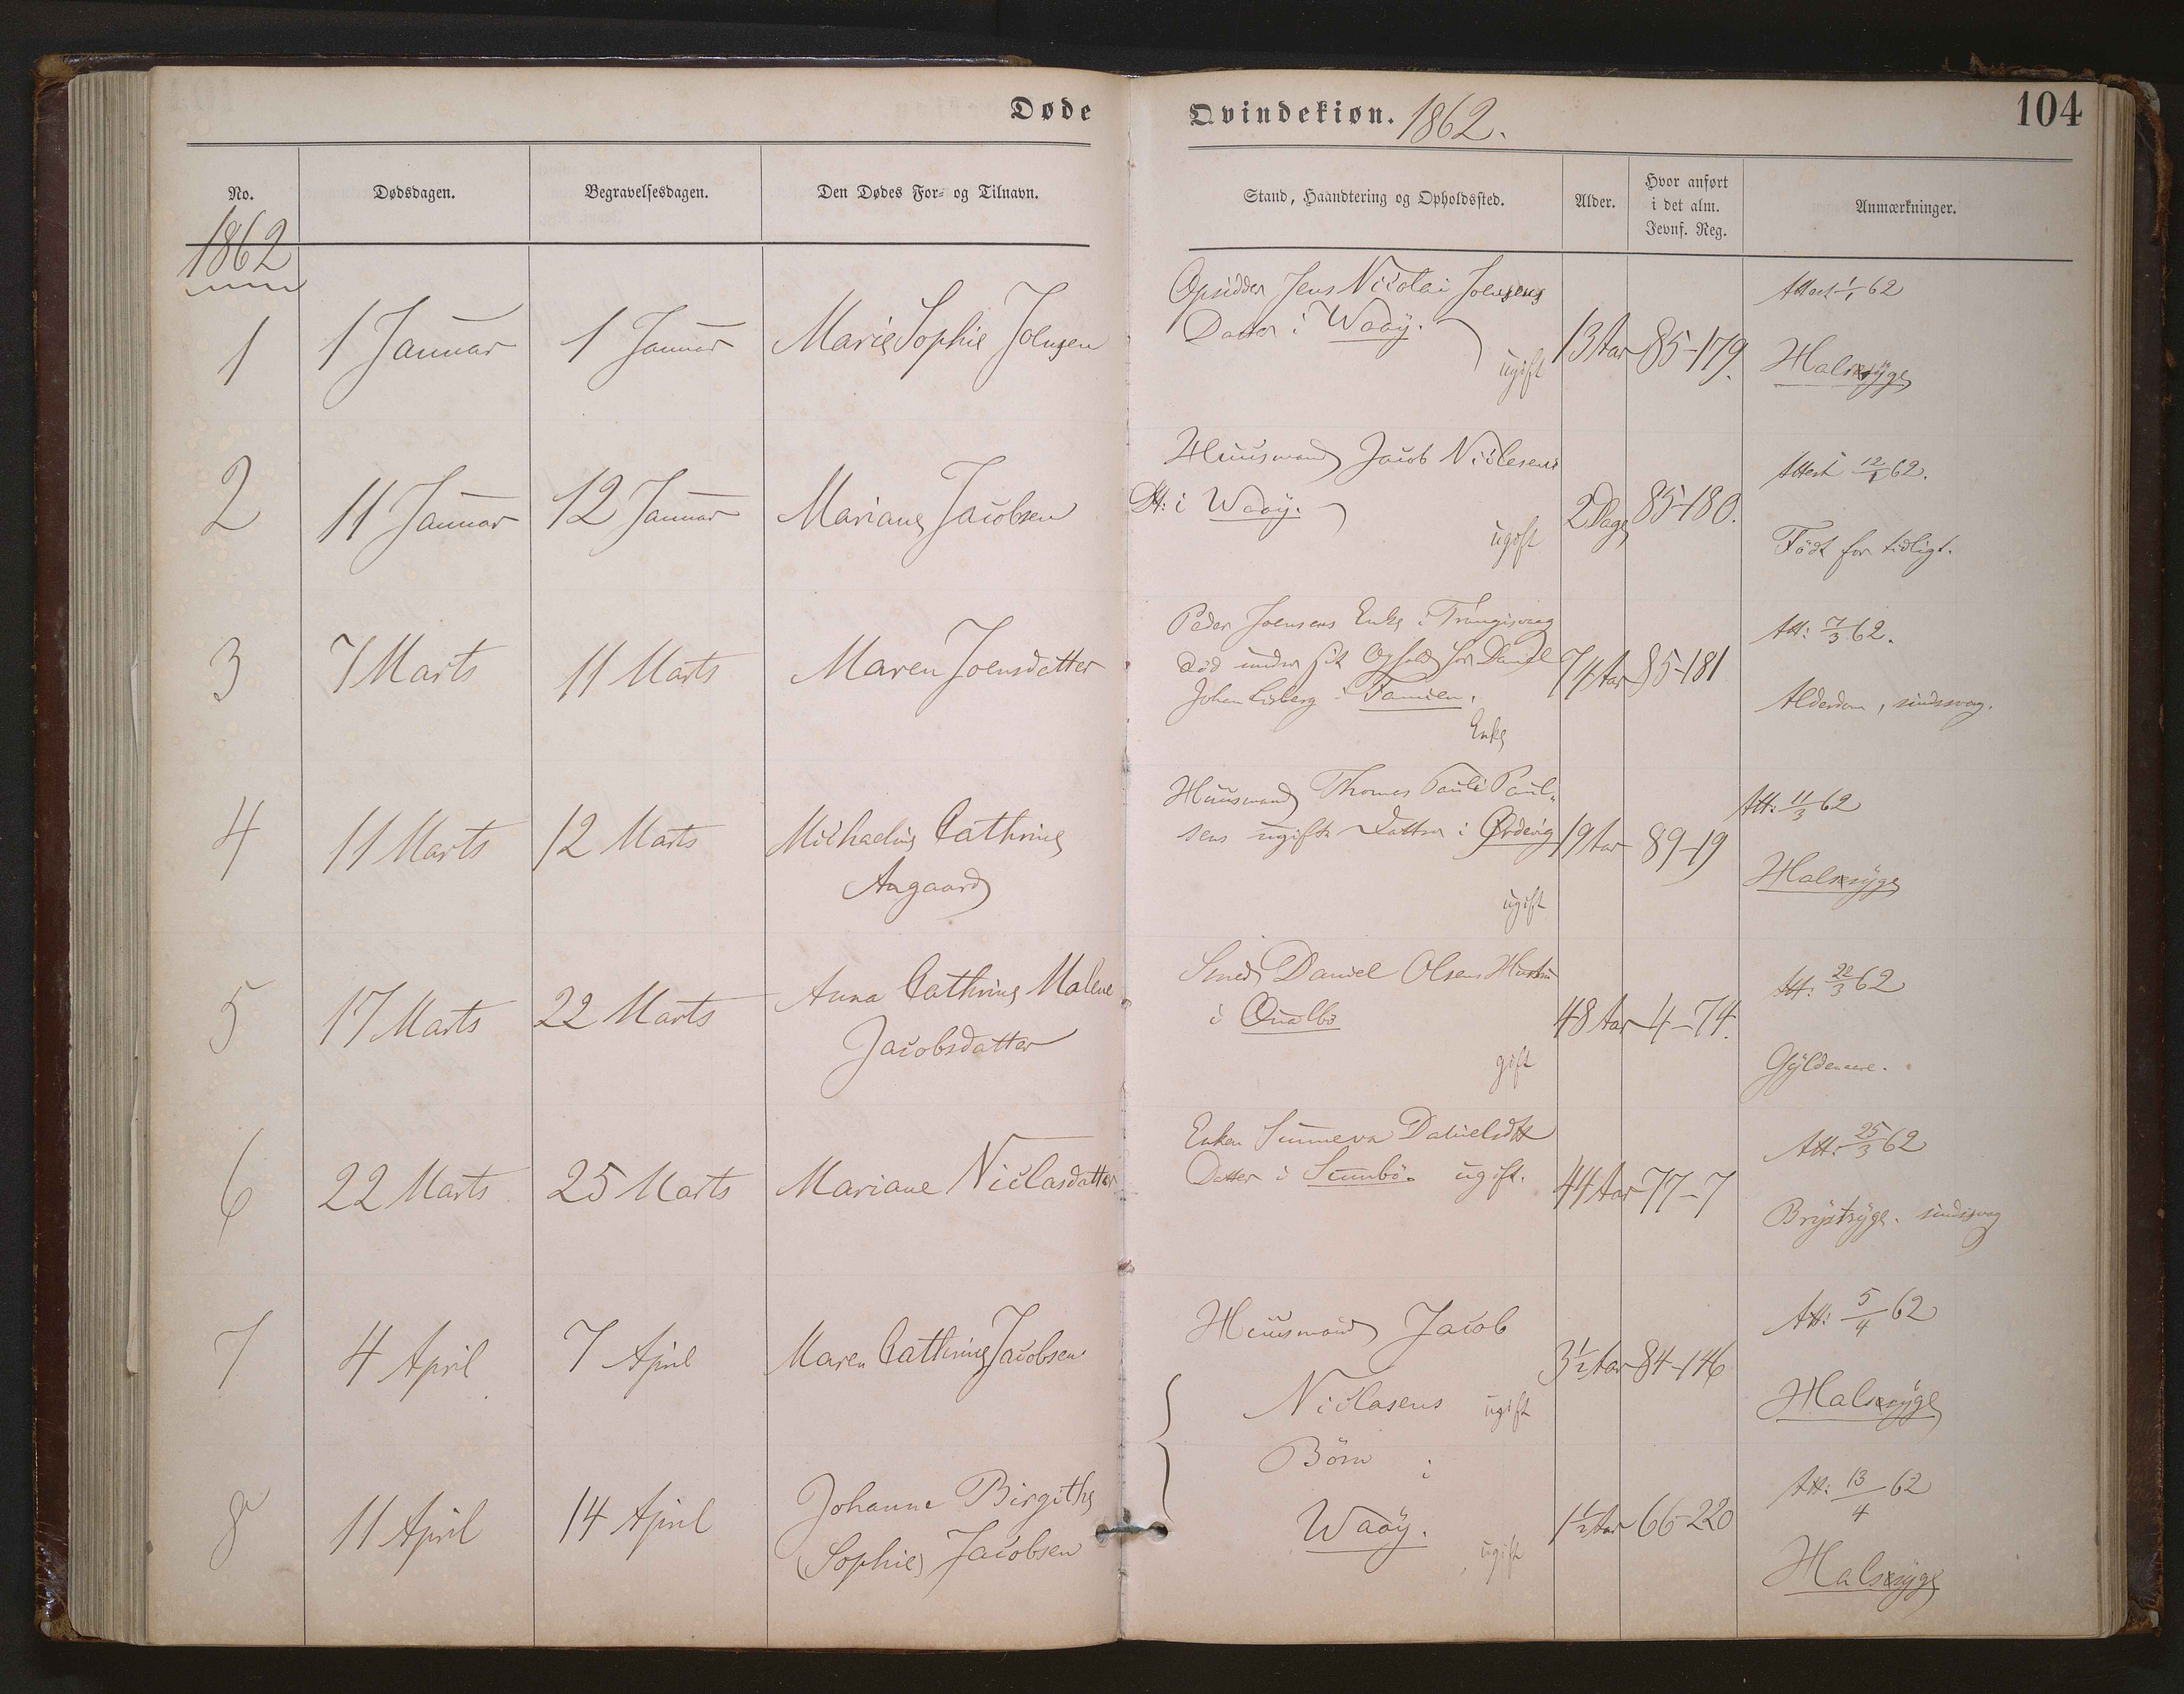 Døde
Qvindekiøn. 1862.
104
No.
Dødsdagen.
Begravelsesdagen.
Den Dødes For- og Tilnavn.
Stand, Haandtering og Opholdssted.
Alder.
Hvor anført
i det alm.
Jevnf. Reg.
Anmærkninger.
1862
1
1 Januar
1 Januar
Marie Sophie Joensen
Opsidder Jens Nicolai Joensens
Datter i Waay.
ugift
13 Aar
85-179.
Attest 1/1 62
Halssyge
2
11 Januar
12 Januar
Mariane Jacobsen
Huusmand Jacob Niclesens
Dtt: i Waay.
ugift
2 Dage
85-180.
Attest 12/1 62.
Födt for tidligt.
3
7 Marts
11 Marts
Maren Joensdatter
Peder Joensens Enke i Trangisvaag
död under sit Ophold hos Daniel
Johan Lisberg i Famien.
Enke
74 Aar
85-181
Att: 7/3 62.
Alderdom, sindssvag.
4
11 Marts
12 Marts
Michaeline Cathrine
Aagaard
Huusmand Thomas Pauli Paul-
sens ugifte Datter i Ördevig
ugift
19 Aar
89-19
Att: 11/3 62
Halssyge
5
17 Marts
22 Marts
Anna Cathrine Malene
Jacobsdatter
Smed Daniel Olsens Hustru
i Qualbö
gift
48 Aar
4-74.
Att: 22/3 62
Gyldenaare.
6
22 Marts
25 Marts
Mariane Niclasdatter
Enken Sunneva Danielsdtt
Datter i Sumbö. ugift.
44 Aar
77-7
Att: 25/3 62
Brystsyge. sindssvag
7
4 April
7 April
Maren Cathrine Jacobsen
Huusmand Jacob
Niclasens ugift
Börn i
Waay.
3 1/2 Aar
84-146
Att: 5/4 62
Halssyge
8
11 April
14 April
Johanne Birgithe
(Sophie) Jacobsen
ugift
1 1/2 Aar
66-220
Att: 13/4 62
Halssyge